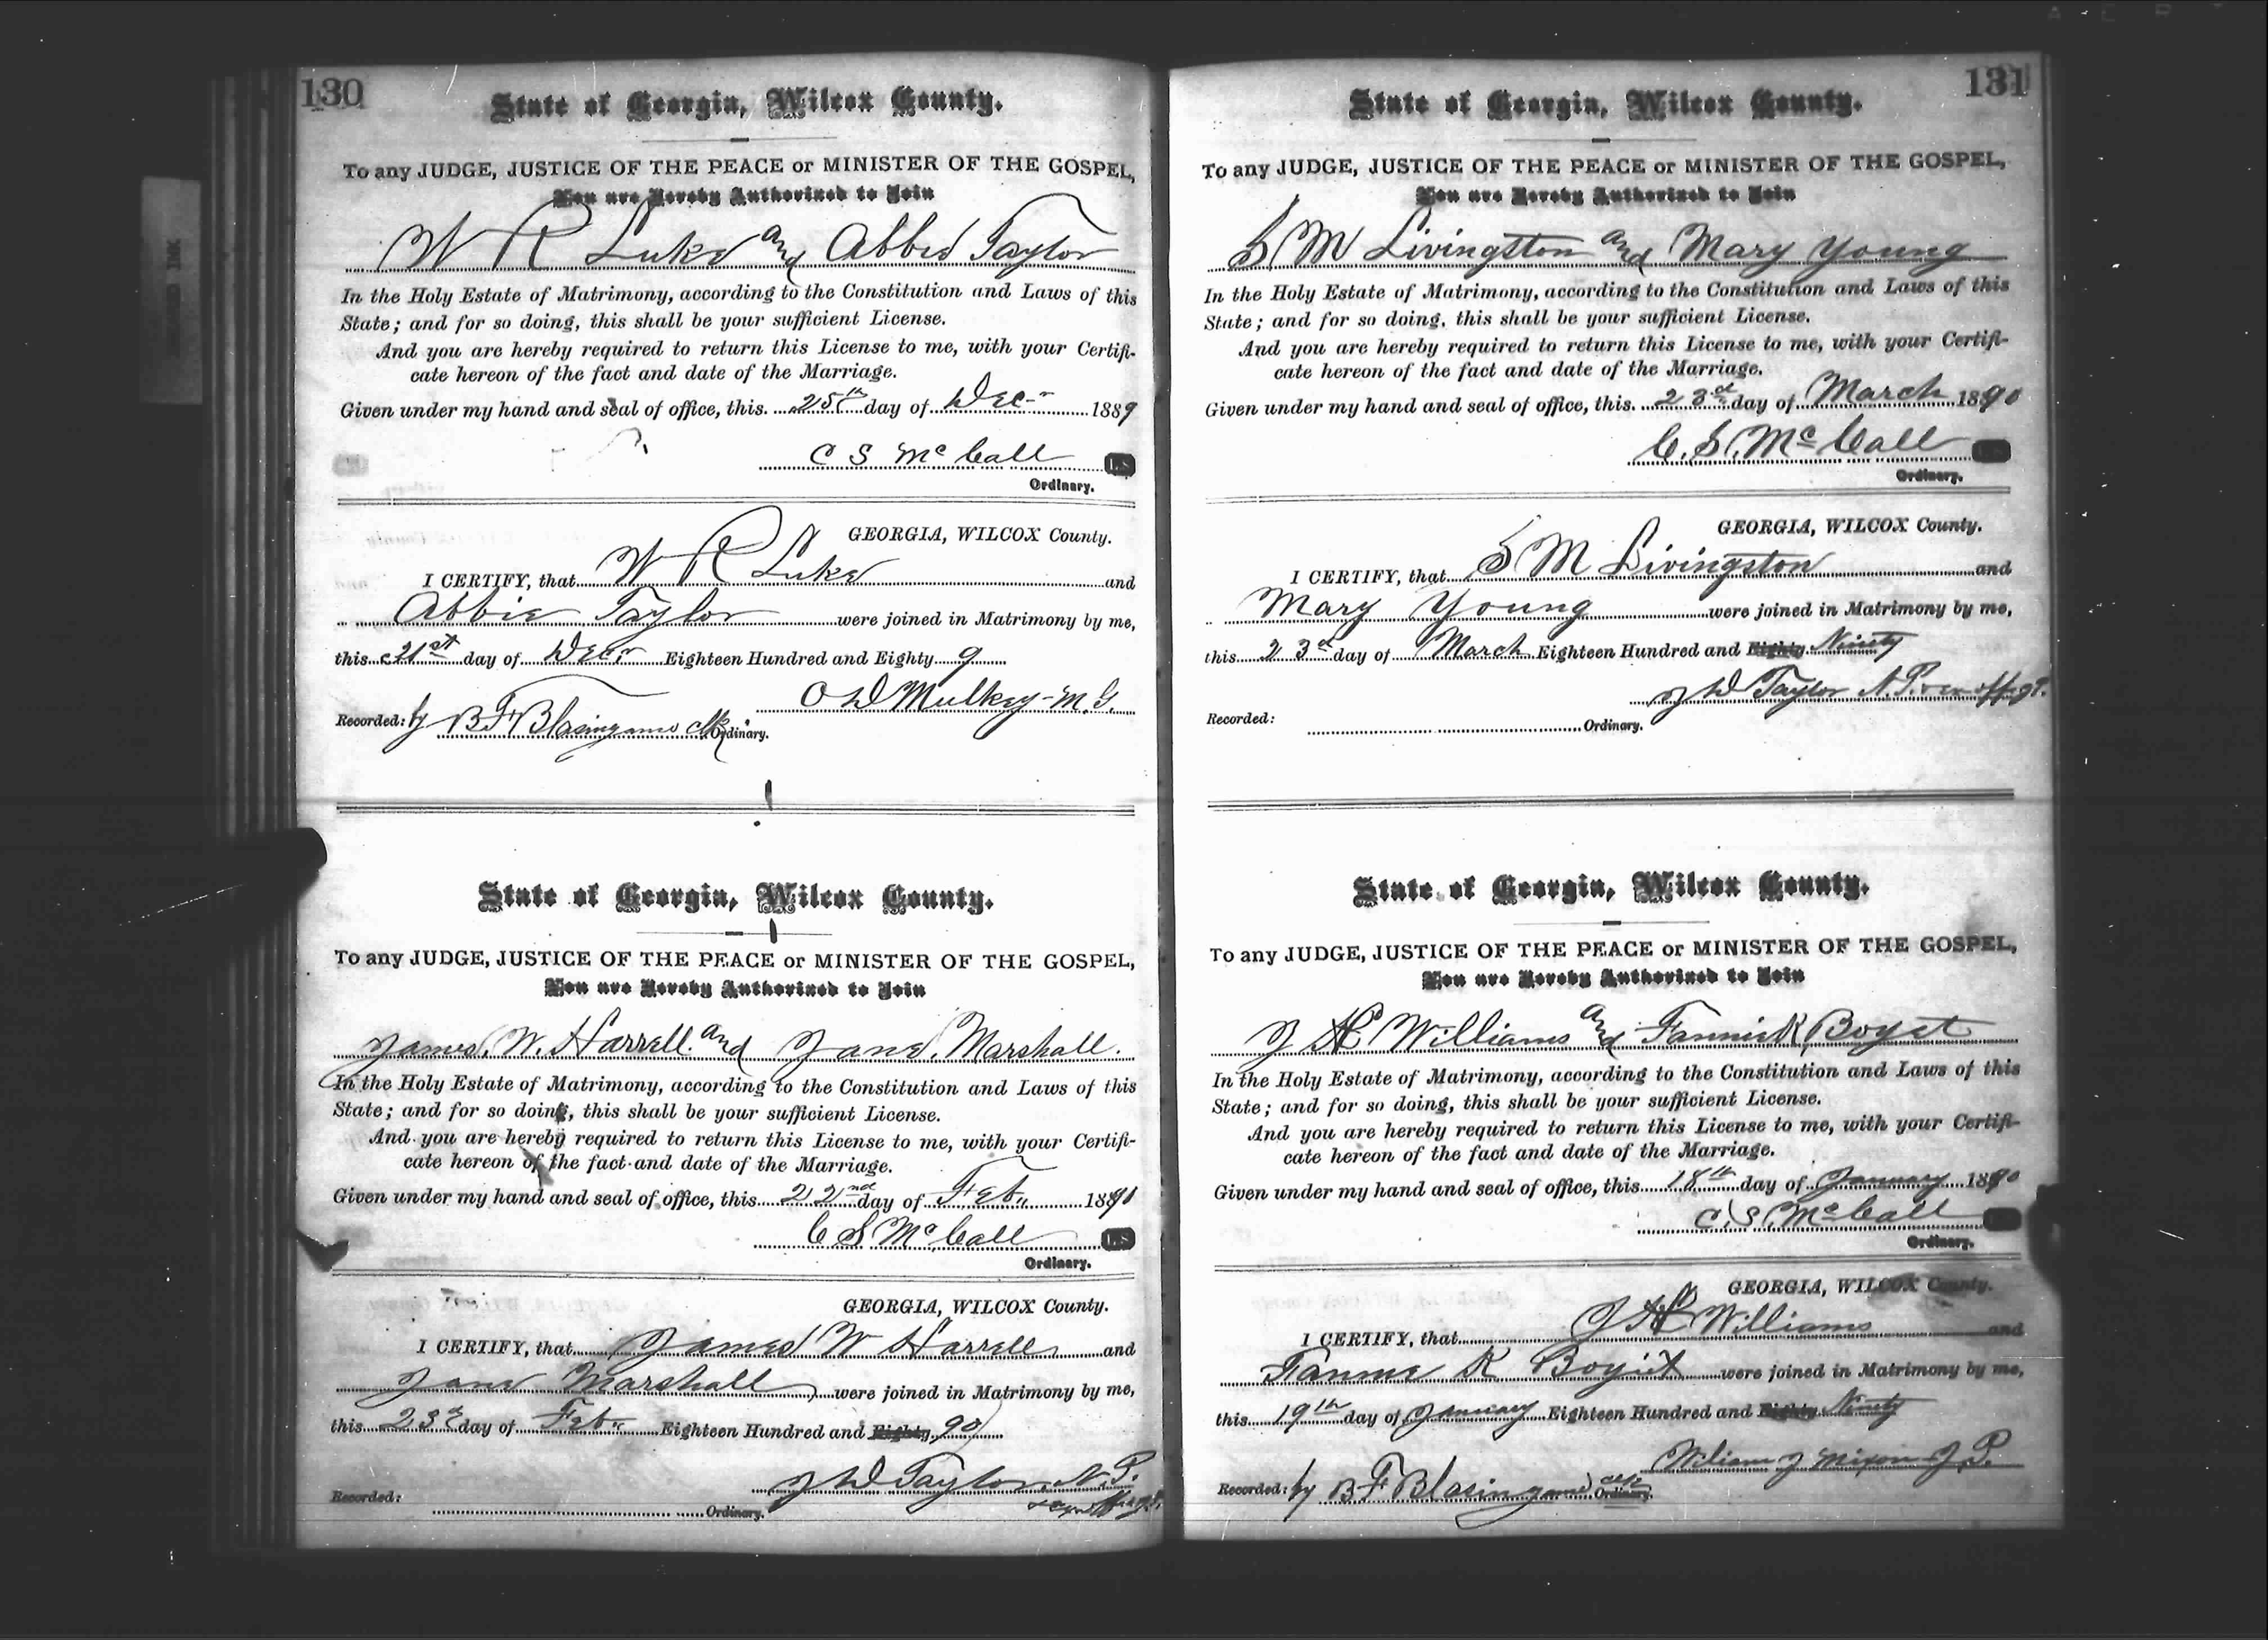 130
State of Georgia, Wilcox County.
To any JUDGE, JUSTICE OF THE PEACE or MINISTER OF THE GOSPEL,
You are Hereby Authorized to Join
W R Luke and Abbie Taylor
In the Holy Estate of Matrimony, according to the Constitution and Laws of this
State; and for so doing, this shall be your sufficient License.
And you are hereby required to return this License to me, with your Certifi-
cate hereon of the fact and date of the Marriage.
Given under my hand and seal of office, this 25th day of Dec 1889
C S McCall L.S
Ordinary.
GEORGIA, WILCOX County.
I CERTIFY, that W R Luke and
Abbie Taylor were joined in Matrimony by me,
this 21st day of Decr Eighteen Hundred and Eighty 9
O D Mulkey M.G.
Recorded: by B F Blasingame Clk Ordinary.
State of Georgia, Wilcox County.
To any JUDGE, JUSTICE OF THE PEACE or MINISTER OF THE GOSPEL,
You are Hereby Authorized to Join
James W. Harrell and Jane Marshall.
In the Holy Estate of Matrimony, according to the Constitution and Laws of this
State; and for so doing, this shall be your sufficient License.
And you are hereby required to return this License to me, with your Certifi-
cate hereon of the fact and date of the Marriage.
Given under my hand and seal of office, this 22nd day of Feb. 1890
C S McCall L.S
Ordinary.
GEORGIA, WILCOX County.
I CERTIFY, that James W Harrell and
Jane Marshall were joined in Matrimony by me,
this 23d day of Feb. Eighteen Hundred and Eighty 90
J W Taylor N.P.
& ex off J.P.
Recorded: Ordinary.
131
State of Georgia, Wilcox County.
To any JUDGE, JUSTICE OF THE PEACE or MINISTER OF THE GOSPEL,
You are Hereby Authorized to Join
S M Livingston and Mary Young
In the Holy Estate of Matrimony, according to the Constitution and Laws of this
State; and for so doing, this shall be your sufficient License.
And you are hereby required to return this License to me, with your Certifi-
cate hereon of the fact and date of the Marriage.
Given under my hand and seal of office, this 23rd day of March 1890
C. S. McCall
Ordinary.
GEORGIA, WILCOX County.
I CERTIFY, that S M Livingston and
Mary Young were joined in Matrimony by me,
this 23d day of March Eighteen Hundred and Eighty Ninety
J W Taylor N.P. & ex off J.P.
Recorded: Ordinary.
State of Georgia, Wilcox County.
To any JUDGE, JUSTICE OF THE PEACE or MINISTER OF THE GOSPEL,
You are Hereby Authorized to Join
J H Williams and Fannie K Boyet
In the Holy Estate of Matrimony, according to the Constitution and Laws of this
State; and for so doing, this shall be your sufficient License.
And you are hereby required to return this License to me, with your Certifi-
cate hereon of the fact and date of the Marriage.
Given under my hand and seal of office, this 18th day of January 1890
C. S. McCall
Ordinary.
GEORGIA, WILCOX County.
I CERTIFY, that J H Williams and
Fannie K Boyet were joined in Matrimony by me,
this 19th day of January Eighteen Hundred and Eighty Ninety
William J Mixon J.P.
Recorded: by B F Blasingame Clk Ordinary.